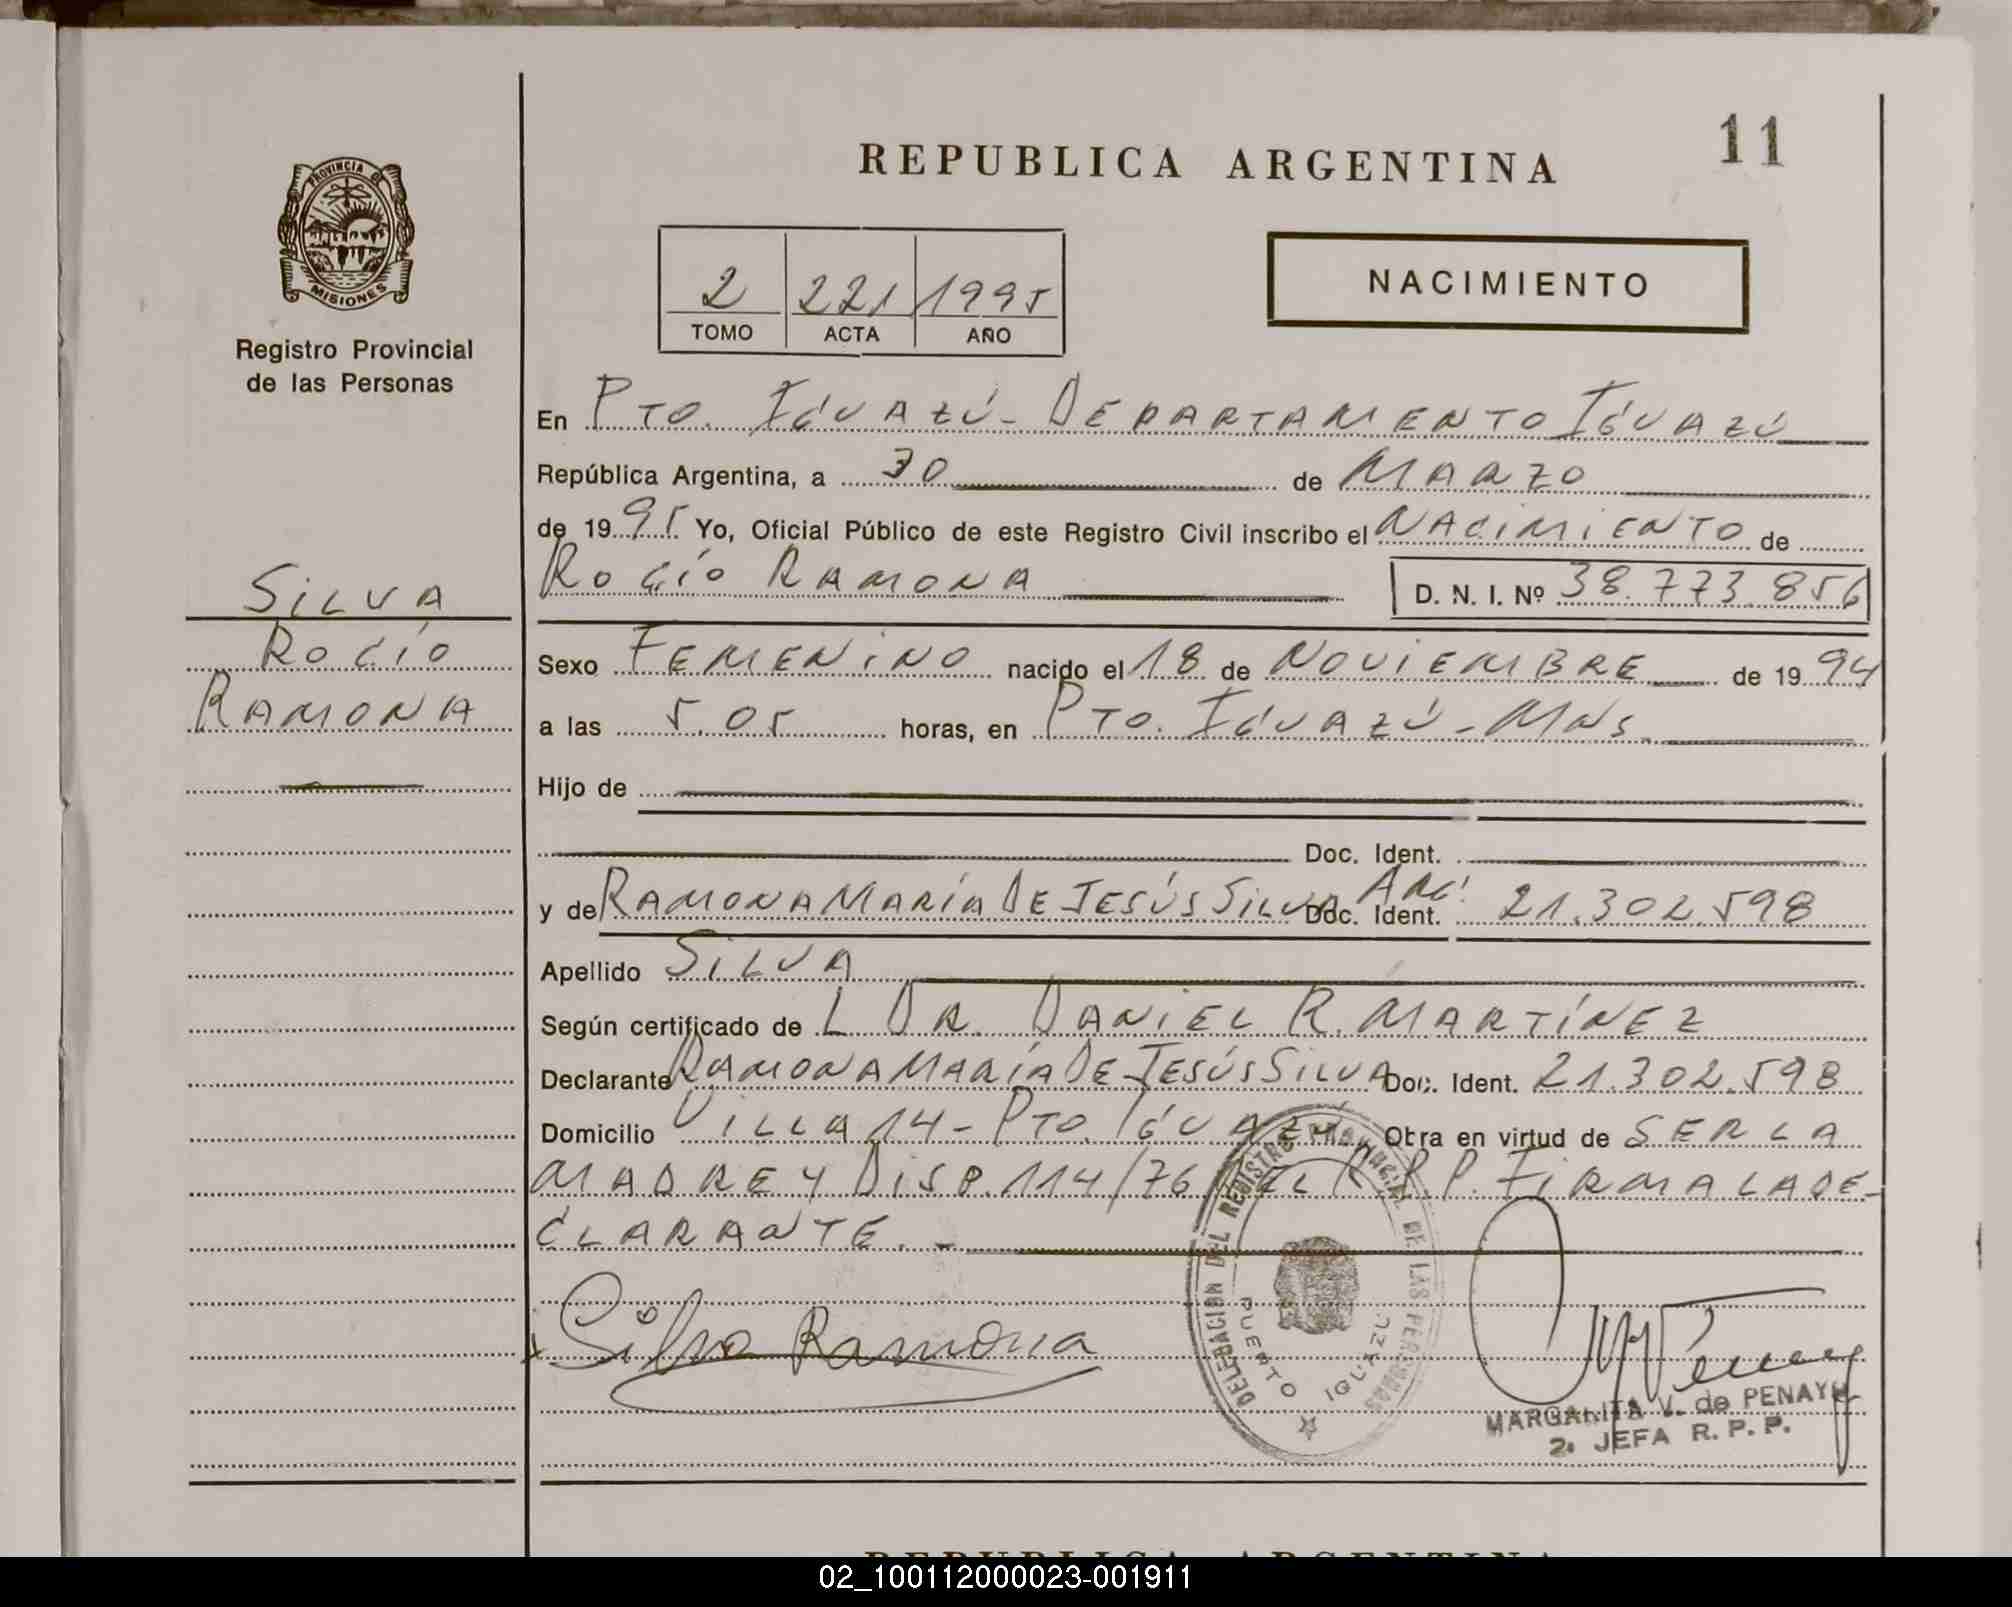 REPUBLICA ARGENTINA
11
PROVINCIA DE
MISIONES
Registro Provincial
de las Personas
2 221 1995
TOMO ACTA AÑO
NACIMIENTO
En PTO. IGUAZÚ - DEPARTAMENTO IGUAZÚ
República Argentina, a 30 de MARZO
de 1995 Yo, Oficial Público de este Registro Civil inscribo el NACIMIENTO de
ROCÍO RAMONA D. N. I. Nº 38.773.856
SILVA
ROCÍO
RAMONA
Sexo FEMENINO nacido el 18 de NOVIEMBRE de 1994
a las 5.05 horas, en PTO. IGUAZÚ - MNS.
Hijo de
Doc. Ident.
y de RAMONA MARÍA DE JESÚS SILVA Doc. Ident. ARG. 21.302.598
Apellido SILVA
Según certificado de L DR. DANIEL R. MARTÍNEZ
Declarante RAMONA MARÍA DE JESÚS SILVA Doc. Ident. 21.302.598
Domicilio VILLA 14 - PTO. IGUAZÚ Obra en virtud de SER LA
MADRE Y DISP. 114/76 DEL R.P.P. FIRMA LA DE-
CLARANTE. -
Silva Ramona
DELEGACION DEL REGISTRO PROVINCIAL DE LAS PERSONAS
PUERTO IGUAZU
MARGARITA V. de PENAYO
2. JEFA R. P. P.
REPUBLICA ARGENTINA
02_100112000023-001911